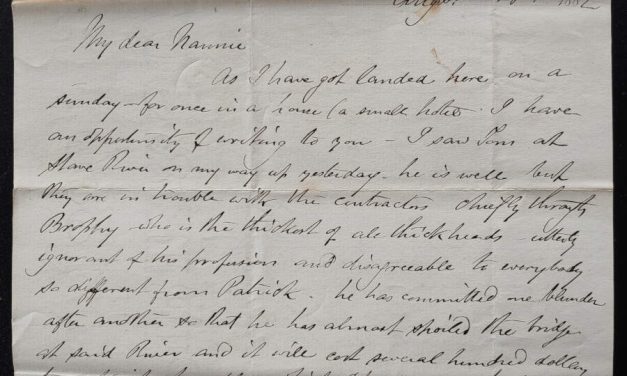 1882
My dear Nannie
As I have got landed here on a
sunday – for once in a house (a small hotel. I have
an opportunity of writing to you – I saw Tom at
Slave River on my way up yesterday – he is well but
they are in trouble with the contractors chiefly through
Brophy – who is the thickest of all thickheads utterly
ignorant of his profession and disagreeable to everybody
so different from Patrick – he has committed one blunder
after another so that he has almost spoiled the bridge
at said River and it will cost several hundred dollars